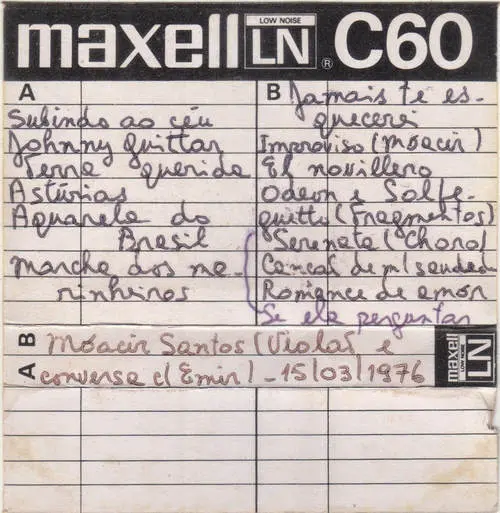 maxell LOW NOISE LN ® C60
A
Subindo ao céu
Johnny guittar
Terra querida
Astúrias
Aquarela do
Brasil
Marcha dos ma-
rinheiros
B Jamais te es-
quecerei
Improviso (Moacir)
El novillero
Odeon e Solfe-
guitto (Fragmentos)
Serenata (Choro)
Canção de m/ saudade
Romance de amor
Se ela perguntar
B
A
Moacir Santos (Viola) e
conversa c/ Emir) - 15/03/1976
maxell LOW NOISE LN